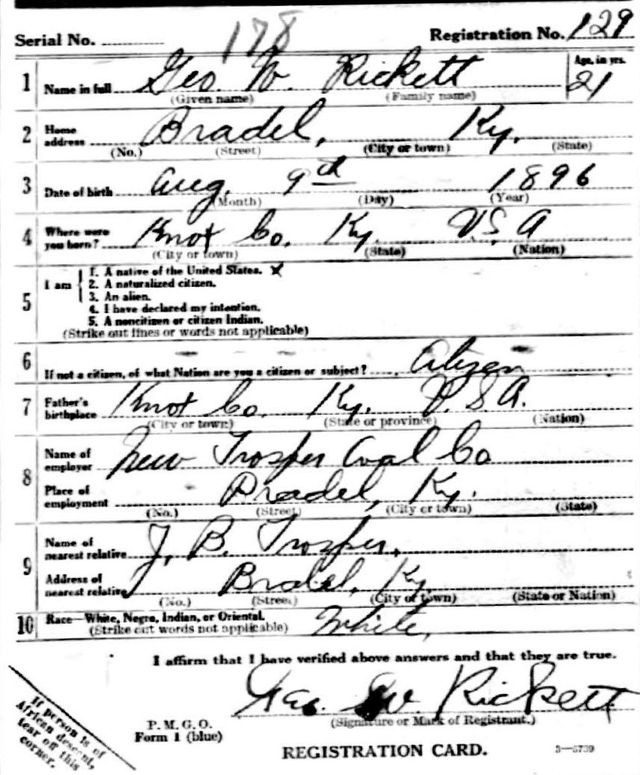 Serial No. 178 Registration No. 129
1 Name in full Geo. W. Rickett Age, in yrs. 21
(Given name) (Family name)
2 Home address Bradel, Ky.
(No.) (Street) (City or town) (State)
3 Date of birth Aug. 9th 1896
(Month) (Day) (Year)
4 Where were you born? Knox Co. Ky. U.S.A
(City or town) (State) (Nation)
5 I am
1. A native of the United States. x
2. A naturalized citizen.
3. An alien.
4. I have declared my intention.
5. A noncitizen or citizen Indian.
(Strike out lines or words not applicable)
6 If not a citizen, of what Nation are you a citizen or subject? Citizen
7 Father's birthplace Knox Co. Ky. U.S.A.
(City or town) (State or province) (Nation)
8 Name of employer New Trosper Coal Co
Place of employment Bradel, Ky.
(No.) (Street) (City or town) (State)
9 Name of nearest relative J. B. Trosper,
Address of nearest relative Bradel, Ky
(No.) (Street) (City or town) (State or Nation)
10 Race—White, Negro, Indian, or Oriental. White,
(Strike out words not applicable)
I affirm that I have verified above answers and that they are true.
Geo. W. Rickett
(Signature or Mark of Registrant.)
If person is of
African descent,
tear off this
corner.
P. M. G. O.
Form 1 (blue)
REGISTRATION CARD. 3—5739